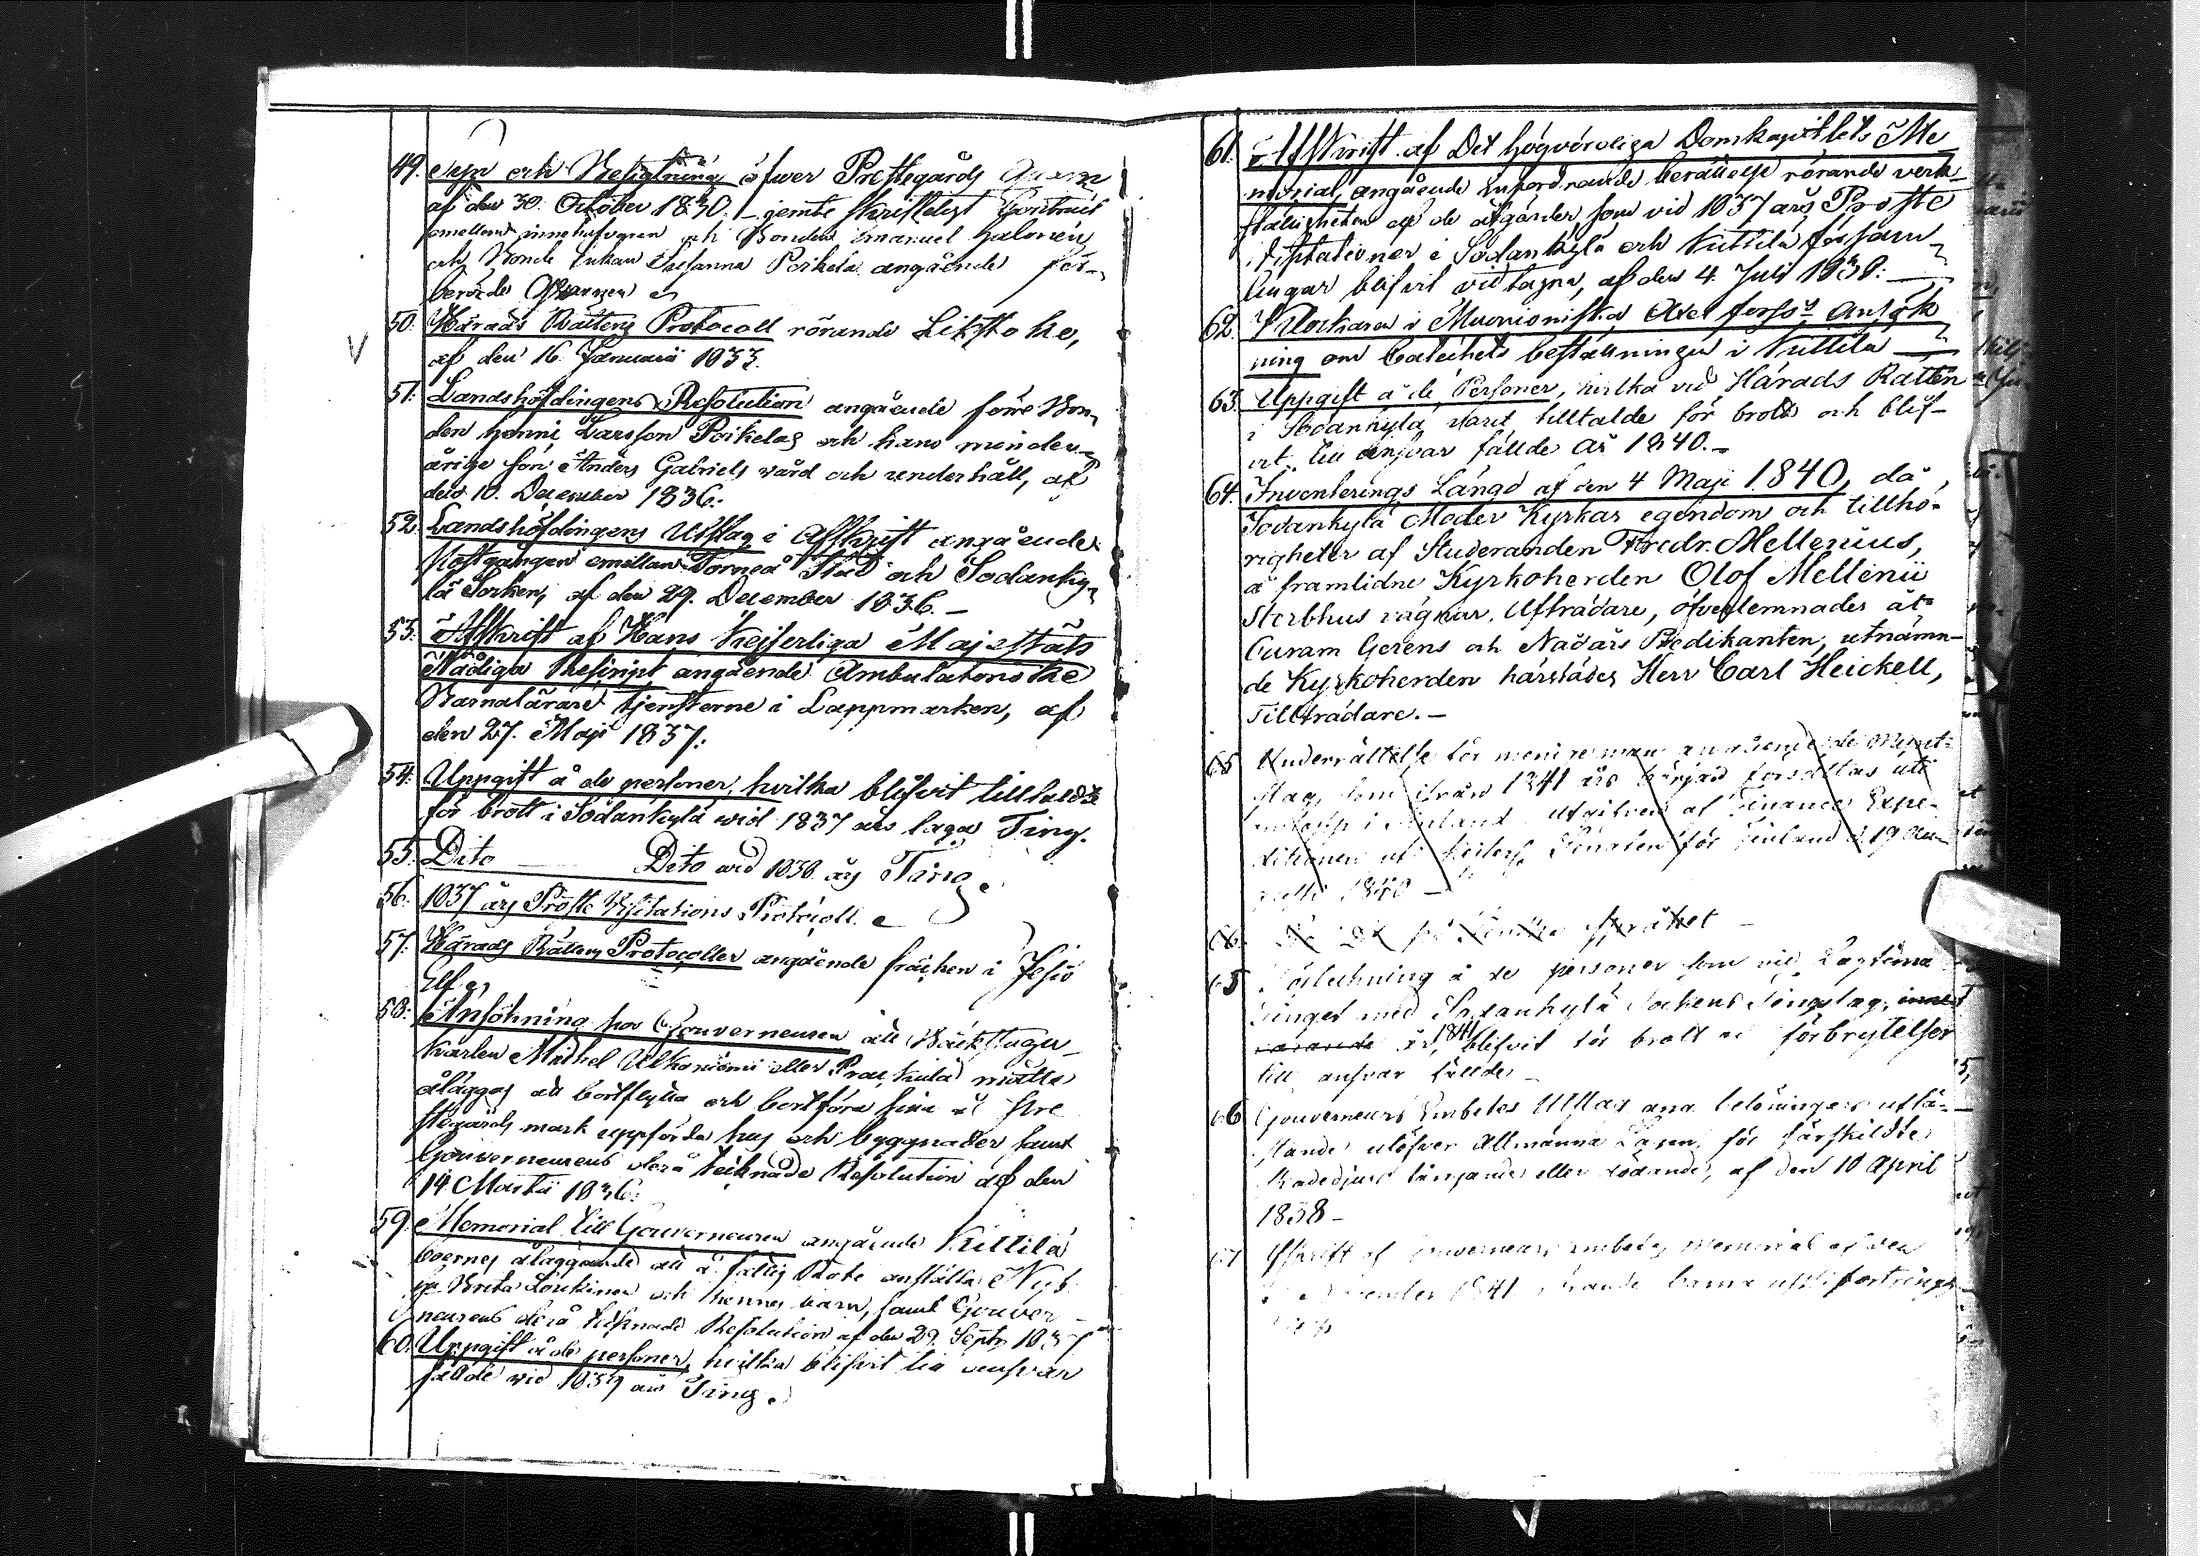 49. Syn och Besigtning öfwer Prestegårds Qvarn
af den 30. October 1830. jemte skriftligt Contract
emellan innehafvaren och Bonden Emanuel Halonen
och Bonde Enkan Susanna Poikela angående för-
berörde Qvarnen
50. Härads Rättens Protocoll rörande Likstoke,
af den 16. Januarii 1833.
51. Landshöfdingens Resolution angående förre Bon-
den Henric Larsson Poikelas och hans minder-
årige son Anders Gabriels wård och underhåll, af
den 10. December 1836.
52. Landshöfdingens Utslag i Afskrift angående
Postgången emellan Torneå Stad och Sodanky-
lä Socken, af den 29. December 1836.-
53. Afskrift af Hans Kejserliga Majestäts
Nådiga Rescript angående Ambulatoriske
Barnalärare tjensterne i Lappmarken, af
den 27. Maji 1837.
54. Uppgift å de personer, hvilka blifvit tilltalde
för brott i Sodankylä wid 1837 års laga Ting.
55. Dito Dito wid 1838 års Ting.
56. 1837 års Proste Visitations Protocoll.
57. Härads Rättens Protocoller angående fräken i Jesiö
Elf.
58. Ansökning hos Gouverneuren att Backstugu-
karlen Michel Alkoniemi eller måtte
åläggas att bortflytta och bortföra sina å Pre-
stegårds mark uppförda hus och byggnader samt
Gouverneurens derå teknade Resolution af den
14. Martii 1836.
59. Memorial till Gouverneuren angående Kittilä
boernes åläggande att å fattig Rote anställa Nyb.
Brita Loukinen och hennes barn, samt Gouver-
neurens derå teknade Resolution af den 29. Sept. 1837
60. Uppgift å de personer, hvilka blifvit till ansvar
fällde wid 1839 års Ting.
61. Afskrift af Det högvördiga Domkapitlets Me-
morial, angående infordrande berättelse rörande verk-
ställigheten af de åtgärder, som vid 1837 års Proste
Visitationer i Sodankylä och Kittilä försam-
lingar blifvit vidtagne, af den 4. Juli 1838.
62. Klockaren i Muonioniska Axel Ansök-
ning om Catechets beställningen i Kittilä
63. Uppgift å de Personer, hvilka vid Härads Rätten
i Sodankylä varit tilltalde för brott och blif-
vit till ansvar fällde År 1840.-
64. Inventerings Längd af den 4 Maji 1840, då
Sodankylä Moder Kyrkas egendom och tillhö-
righeter af Studeranden Fredr. Mellenius,
å framlidne Kyrkoherden Olof Mellenii
Sterbhus vägnar, Afträdare, öfverlemnades åt
Curam Gerens och Nådårs Predikanten, utnämn-
de Kyrkoherden härstädes Herr Carl Heickell,
Tillträdare.-
65 Underrättelse för menige man angående de Mynt-
slag, som ifrån 1841 års början utk
i Finland utgifven af Finance Expe-
ditionen uti Keiserl. Senaten för Finland d. 19 Au-
gusti 1840 -
66. på Finska språket -
65 Förteckning å de personer som vid Lagtima
Tinget med Sodankylä Sockens Tingslag,
år 1841 blifvit för brott och förbrytelser
till ansvar fällde -
66 Gouverneurs Embetes Utslag ang. belöningars utfä-
stande utöfver Allmänna Lagen för särskildte
Rofdjurs fångande eller dödande, af den 10 April
1838 -
67 Afskrift af Gouverneurs embetes memorial af den
1841 rörande